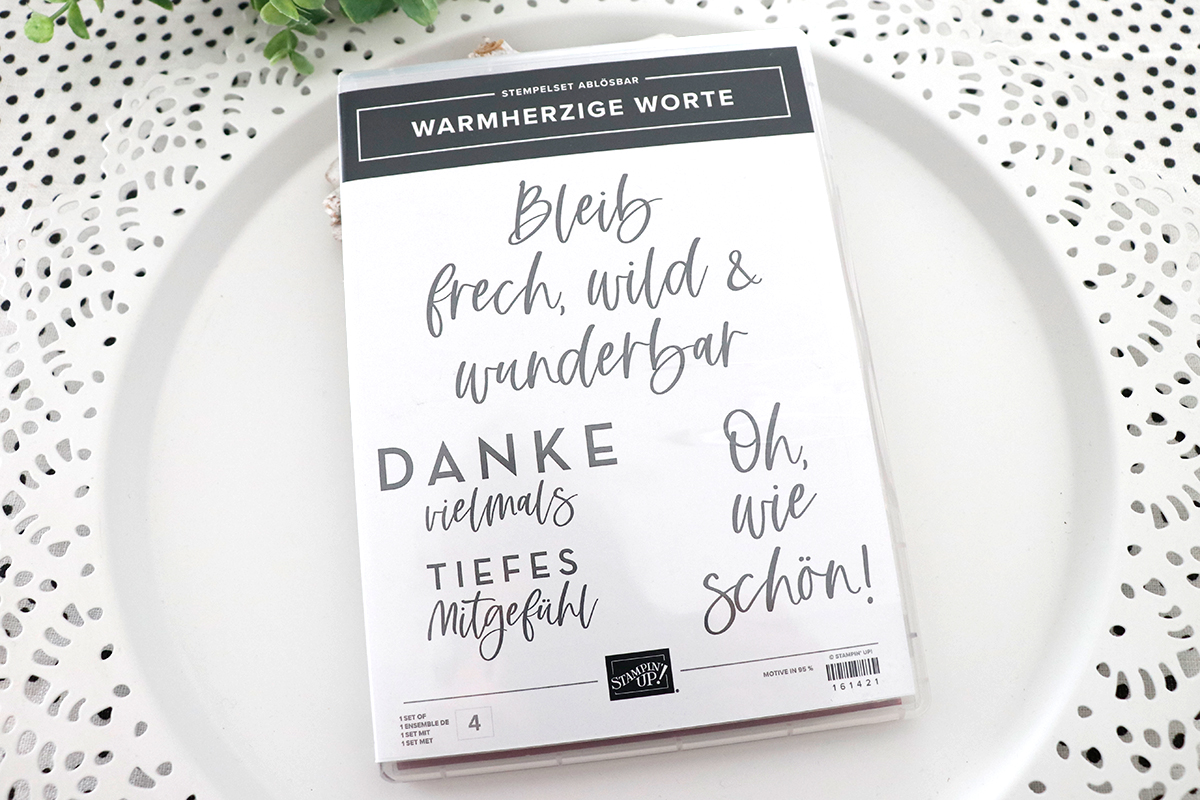 STEMPELSET ABLÖSBAR
WARMHERZIGE WORTE
Bleib
frech, wild &
wunderbar
DANKE
vielmals
Oh,
wie
schön!
TIEFES
Mitgefühl
STAMPIN' UP!
MOTIVE IN 95 %
© STAMPIN' UP!
161421
1 SET OF
1 ENSEMBLE DE
1 SET MIT
1 SET MET
4